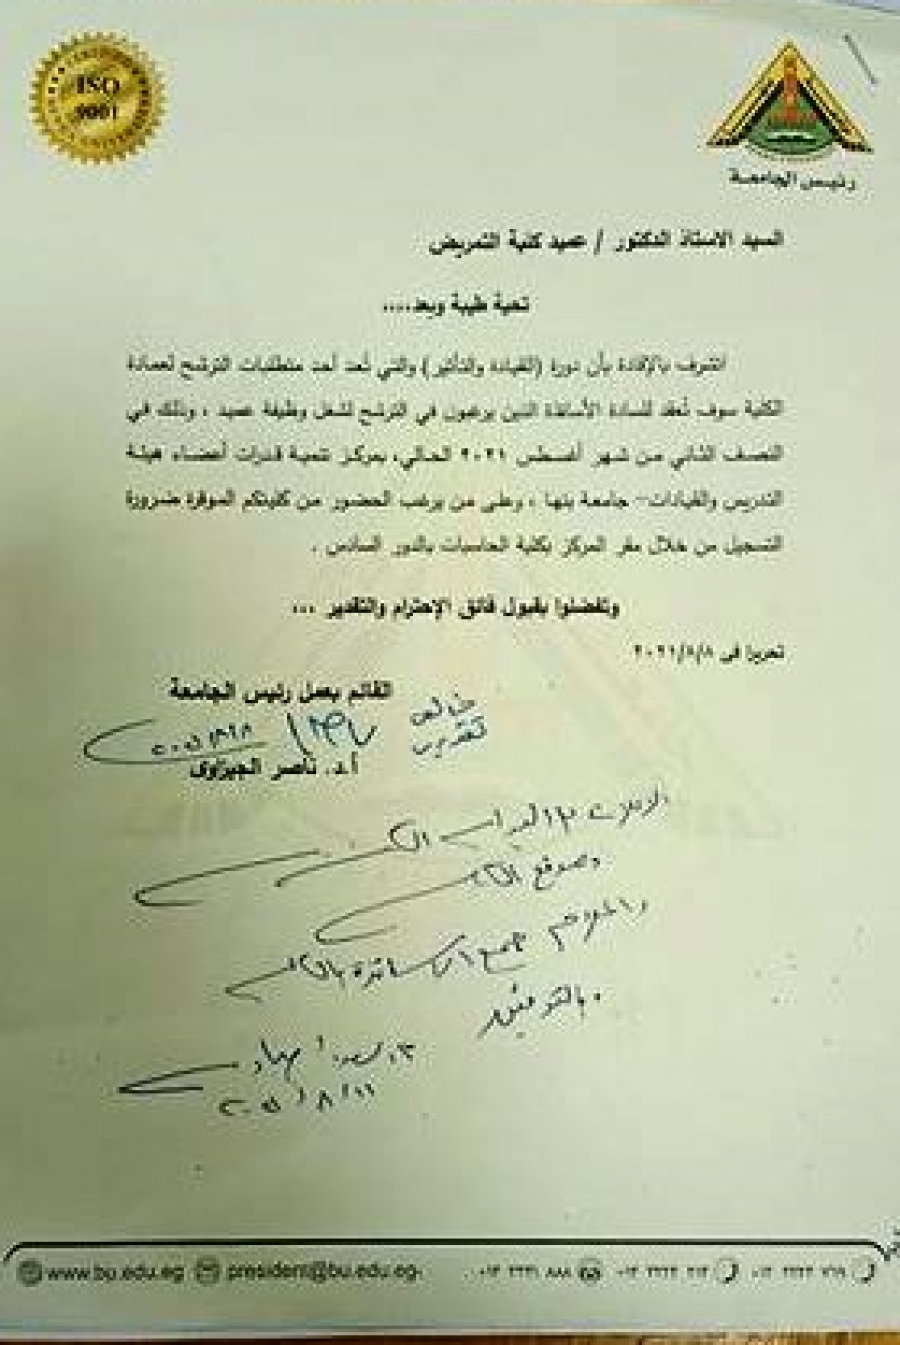 ISO
9001
رئيس الجامعة
السيد الاستاذ الدكتور / عميد كلية التمريض
تحية طيبة وبعد....
اتشرف بالإفادة بأن دورة (القيادة والتأثير) والتي تُعد أحد متطلبات الترشح لعمادة
الكلية سوف تُعقد للسادة الأساتذة الذين يرغبون في الترشح لشغل وظيفة عميد ، وذلك في
النصف الثاني من شهر أغسطس ٢٠٢١ الحالي، بمركز تنمية قدرات أعضاء هيئة
التدريس والقيادات– جامعة بنها ، وعلى من يرغب الحضور من كليتكم الموقرة ضرورة
التسجيل من خلال مقر المركز بكلية الحاسبات بالدور السادس .
وتفضلوا بقبول فائق الإحترام والتقدير ...
تحريرا فى ٢٠٢١/٨/٨
القائم بعمل رئيس الجامعة
خالص
تقديرى
أ.د. ناصر الجيزاوى
وموقع الكلية
جميع الأساتذة بالكلية
وبالتوفيق
٢٠٢١/٨/١١
www.bu.edu.eg president@bu.edu.eg